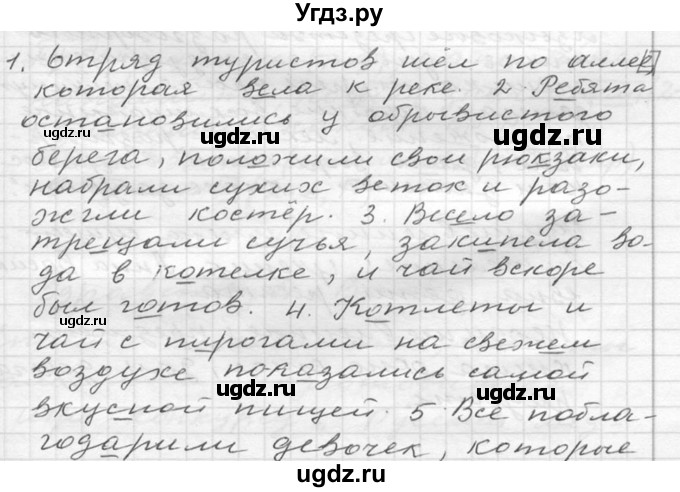 Угдз.ру
1. Отряд туристов шёл по аллее,
которая вела к реке. 2. Ребята
остановились у обрывистого
берега, положили свои рюкзаки,
набрали сухих веток и разо-
жгли костёр. 3. Весело за-
трещали сучья, закипела во-
да в котелке, и чай вскоре
был готов. 4. Котлеты и
чай с пирогами на свежем
воздухе показались самой
вкусной пищей. 5. Все побла-
годарили девочек, которые
ugdz.ru
ugdz.ru
ugdz.ru
ugdz.ru
ugdz.ru
ugdz.ru
ugdz.ru
ugdz.ru
ugdz.ru
ugdz.ru
ugdz.ru